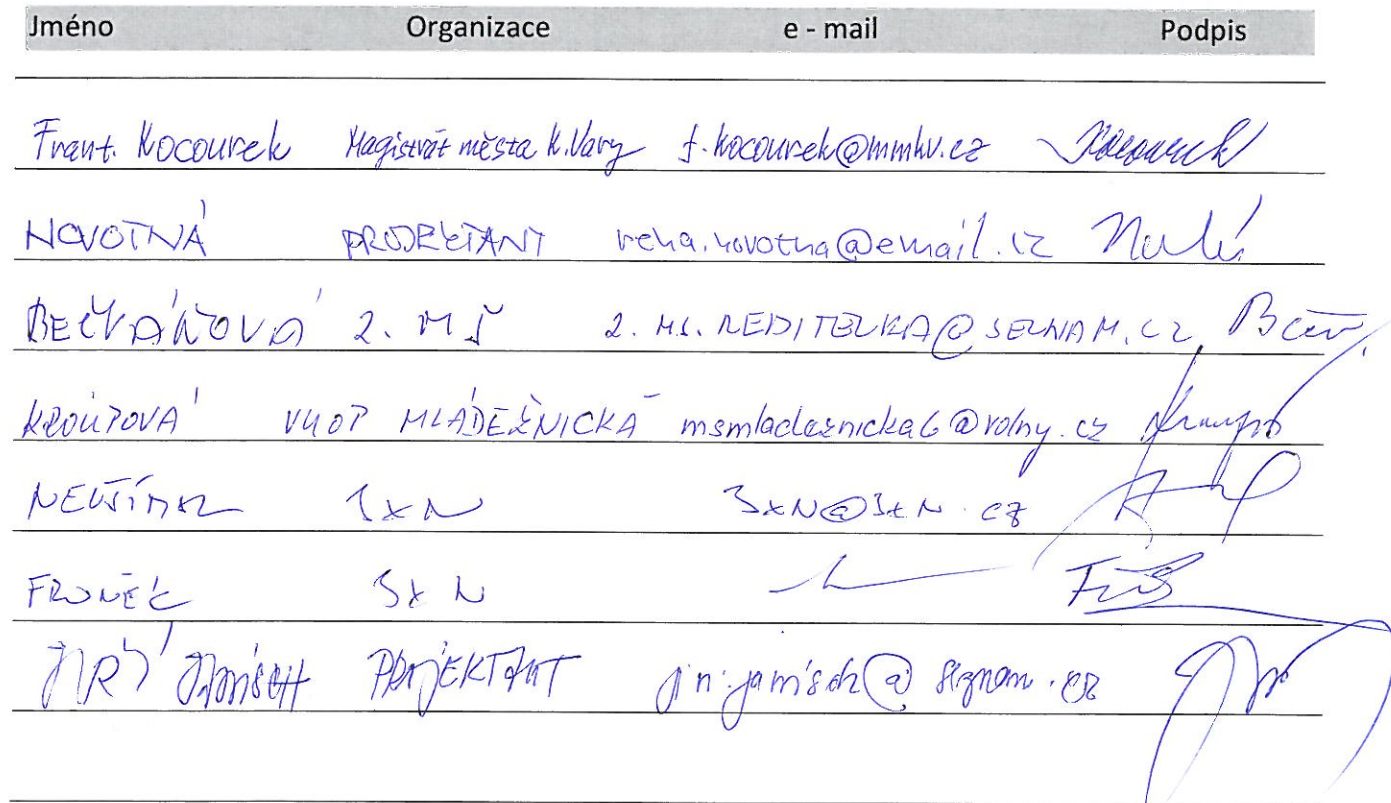 Jméno Organizace e - mail Podpis
Frant. Kocourek Magistrát města K.Vary f.kocourek@mmkv.cz Kocourek
NOVOTNÁ PROJEKTANT rena.novotna@email.cz
2. MŠ 2.MS.REDITELKA@SEZNAM.CZ
KROUPOVÁ MLÁDEŽNICKÁ msmladeznicka6@volny.cz
3xN 3xN@3xN.cz
FRONĚK 3xN
JIŘÍ PROJEKTANT